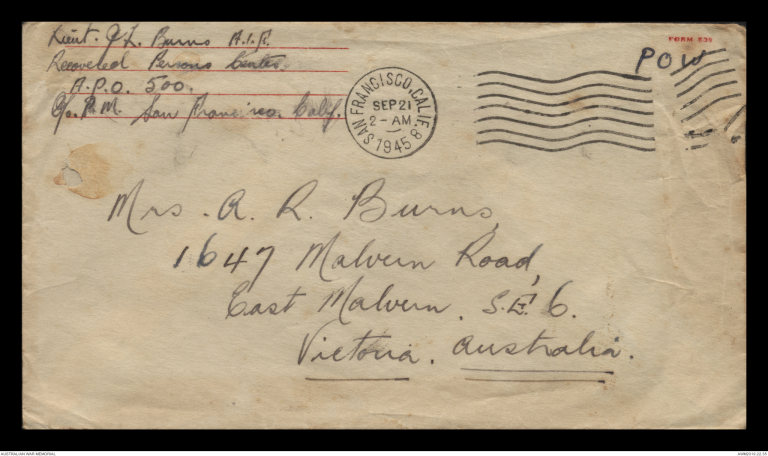 Lieut. J.L. Burns A.I.F.
FORM 539
Recovered Persons Center.
POW
A.P.O. 500.
C/o. P.M. San Francisco. Calif.
SAN FRANCISCO, CALIF.
SEP 21
2 - AM
1945
8
Mrs. A. R. Burns,
1647 Malvern Road,
East Malvern. S.E. 6.
Victoria. Australia.
AUSTRALIAN WAR MEMORIAL